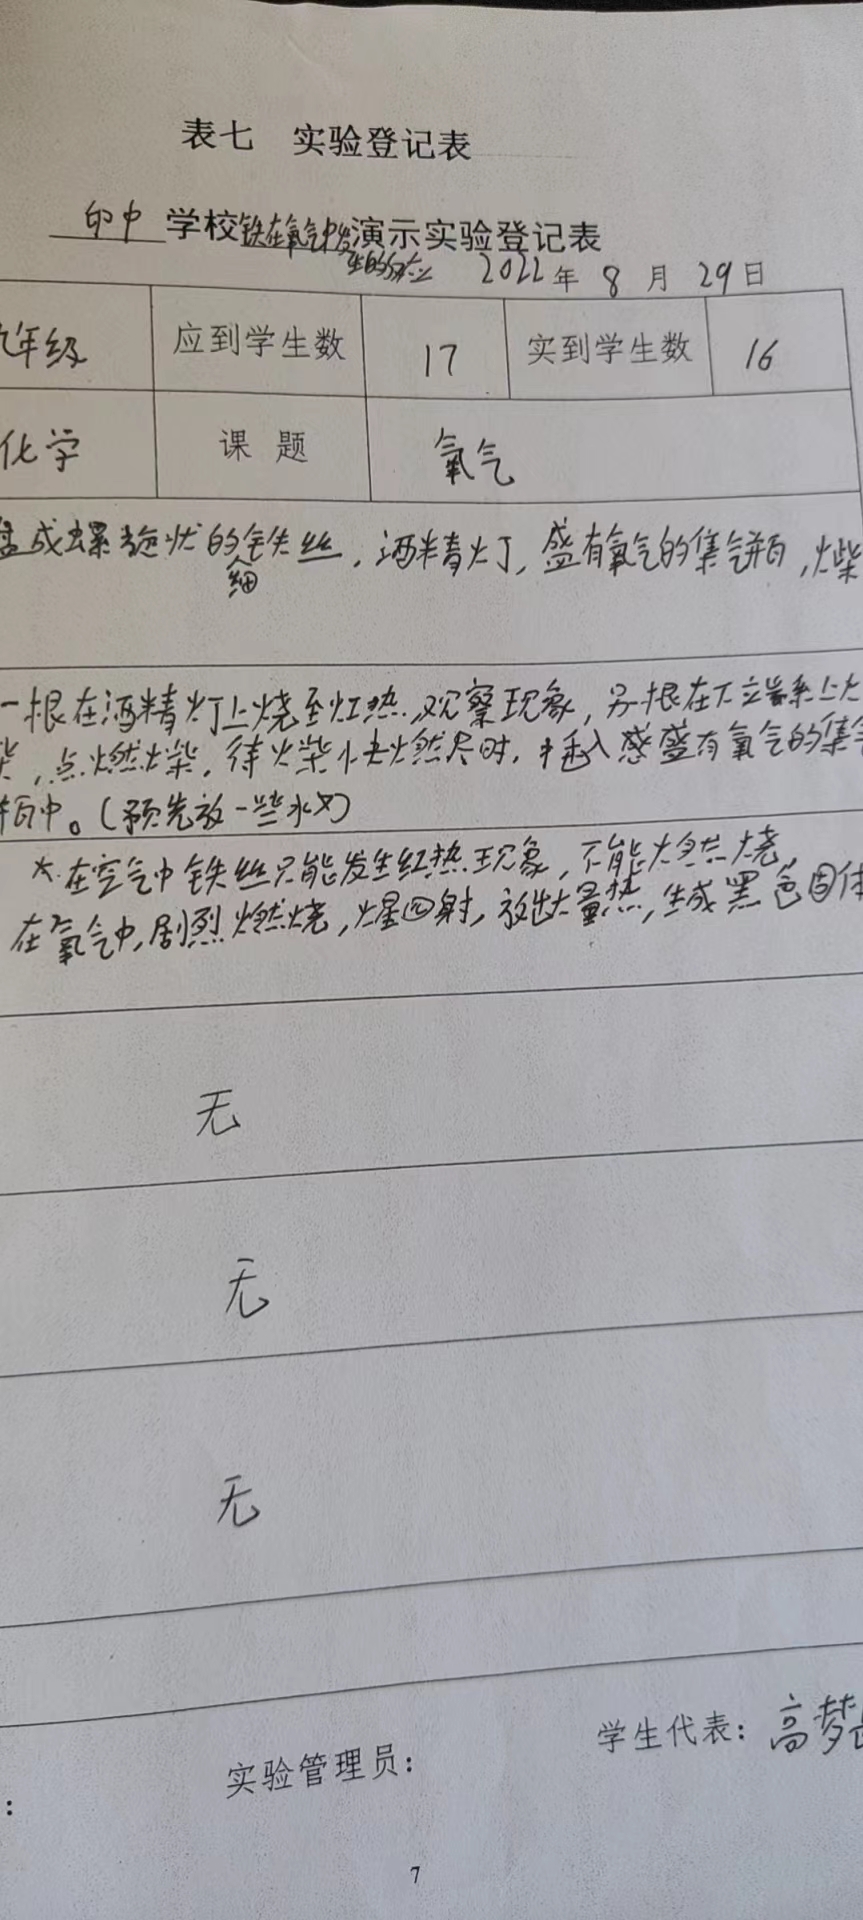 表七 实验登记表
印中 学校铁在氧气中发生的反应演示实验登记表
2022年 8 月 29日
九年级 应到学生数 17 实到学生数 16
化学 课 题 氧气
成螺旋状的细铁丝，酒精灯，盛有氧气的集气瓶，火柴
一根在酒精灯上烧至红热，观察现象，另一根在下端系上火
柴，点燃火柴，待火柴快燃尽时，插入盛有氧气的集气
瓶中。(预先放一些水)
*在空气中铁丝只能发生红热现象，不能燃烧，
在氧气中，剧烈燃烧，火星四射，放出大量热，生成黑色固体
无
无
无
学生代表：高梦
实验管理员：
：
7